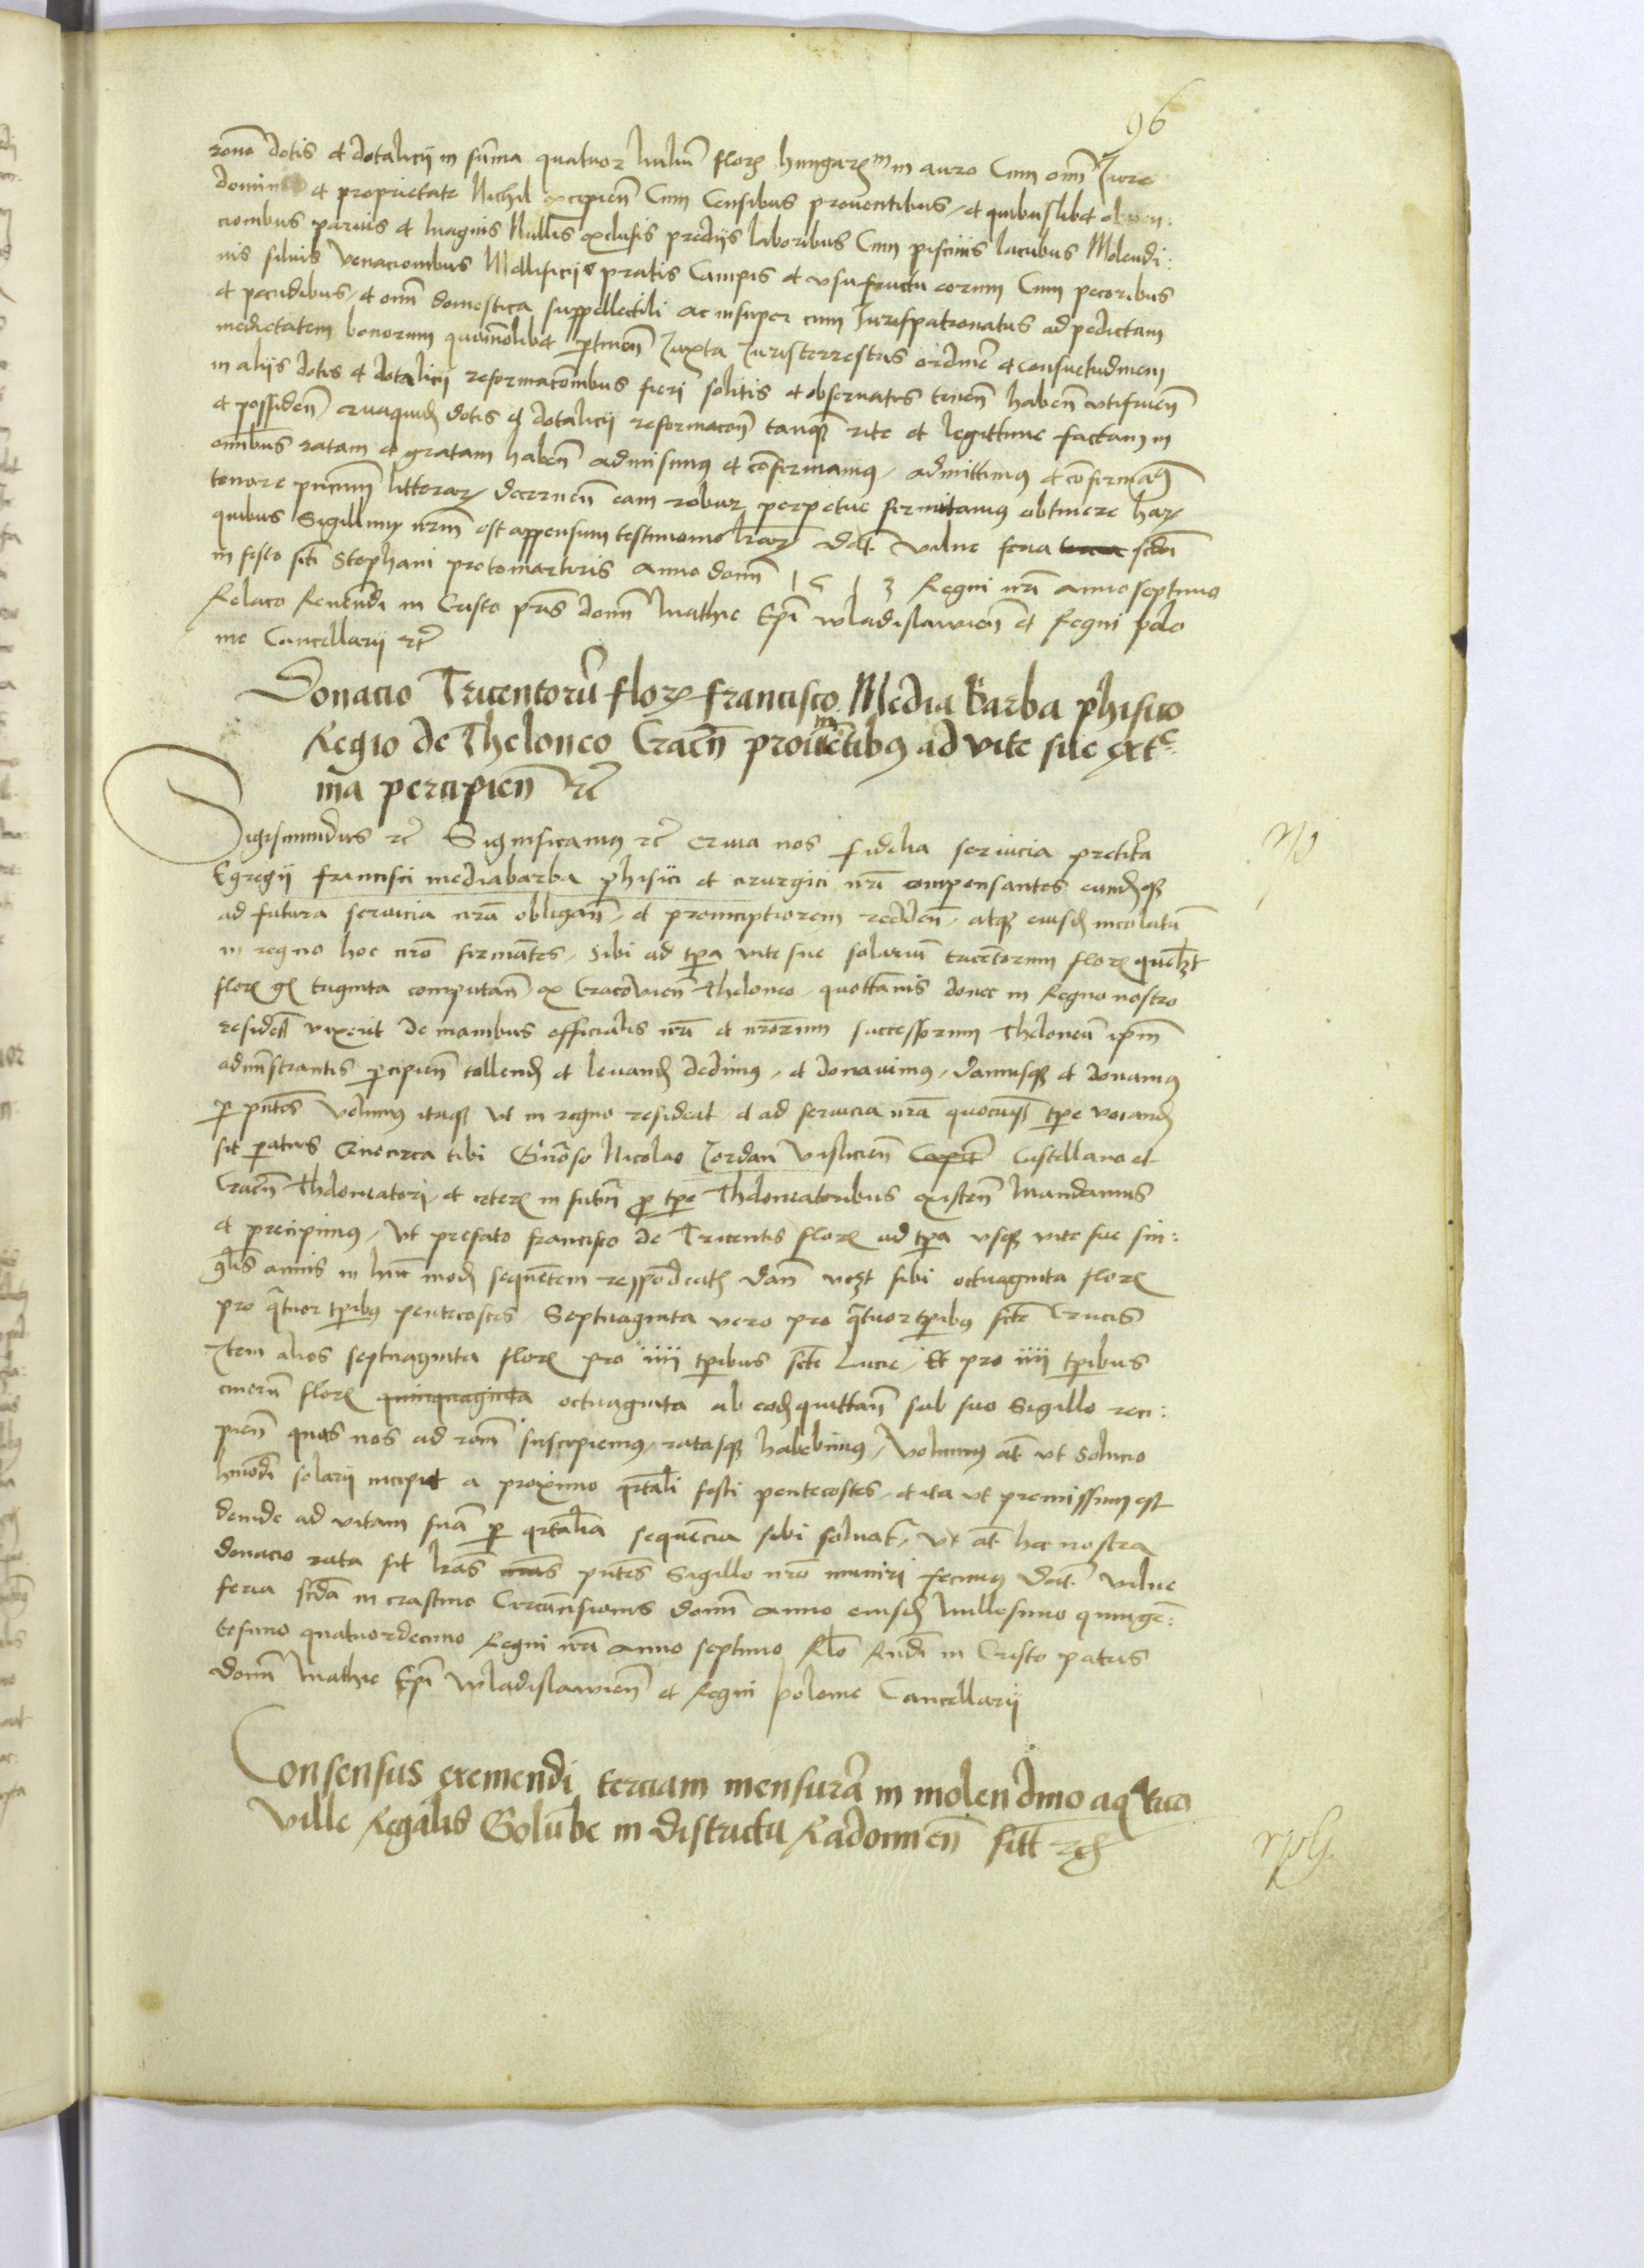 96
rone dotis et dotalicii in summa quatuor milium florenorum hungaricalium in auro Cum omni Iure
dominio et proprietate Nichil excipiendo Cum Censibus proventibus, et quibuslibet obven:
cionibus parvis et magnis Nullis exclusis prediis laboribus Cum piscinis lacubus Molendi:
nis silvis venacionibus Mellificiis pratis Campis et usufructu eorum Cum pecoribus
et pecudibus, et omni domestica suppellectili ac insuper cum Iurispatronatus ad predictam
medietatem bonorum quomodolibet pertinen Iuxta Iuris terrestris ordinem et consuetudinem
in aliis dotis et dotalicii reformacionibus fieri solitis et observatis tenen haben utifruen
et possiden cuiaquidem dotis et dotalicii reformacionem tanquam rite et legittime factam in
omnibus ratam et gratam haben admisimus et confirmavimus, admittimus et confirmamus
tenore presencium litterarum decernen eam robur perpetue firmitatis obtinere harum
quibus Sigillum nostrum est appensum testimonio literarum Dat vilne feria scda
in festo scti Stephani protomartiris Anno domini 1513 Regni nri anno septimo
Relacio Reverendi in Cristo pris domini Mathie Epi wladislaviens et Regni polo
nie Cancellarii etc
Donacio Tricentorum florenorum Francisco Media Barba phisico
Regio de Theloneo Cracoviensi proventibus ad vite sue extre
ma percipien etc
Sigismundus etc Significamus etc Quia nos fidelia servicia preterita
Egregii francisci mediabarba phisici et cirurgici nri compensantes eundemque
ad futura servicia nra obligan, et prompciorem redden, atque eiusdem incolatum
in regno hoc nro firmantes, Sibi ad tempora vite sue solarium tricentorum florenorum quemlibet
floren gr triginta computan ex Cracovien Theloneo, quottannis donec in Regno nostro
residens vixerit de manibus officialis nri et nrorum successorum Theloneum ipsum
administrantis percipien tollend et levand dedimus, et donavimus, damusque et donamus
per pntes volumus itaque ut in regno resideat et ad servicia nra quocunque tempore vocand
sit paratus Quocirca tibi Generoso Nicolao Iordan visliciens Capit Castellano et
Cracn Theloneatori, et ceteris in futurum pro tempore Theloneatoribus existen Mandamus
et precipimus, Ut prefato francisco de Tricentis floren ad tempora usque vite sue sin:
gulis annis in hunc modum sequentem respondeatis dan videlicet sibi octuaginta floren
pro quatuor temporibus pentecostes, Septuaginta vero pro quatuor temporibus scte Crucis
Item alios septuaginta floren pro iiii temporibus scte Lucie, Et pro iiii temporibus
cinerum floren quinquaginta octuaginta ab eodem quittan sub suo Sigillo reci:
pien quas nos ad racionem suscipiemus, ratasque habebimus, Volumus autem ut Solucio
huiusmodi solarii incipiat a proximo quartali festi pentecostes, et ita ut premissum est
deinde ad vitam suam per quartalia sequencia sibi solvatur, Ut autem hec nostra
donacio rata sit literas nras pntes Sigillo nro muniri fecimus Dat Vilne
feria scda in crastino Circumcisionis domini Anno eiusdem Millesimo quingen:
tesimo quatuordecimo Regni nri anno septimo Rlo Rndi in Cristo patris
domini Mathie Epi Wladislaviens et Regni polonie Cancellarii
Consensus exemendi terciam mensuram in molendino aquatico
ville Regalis Golumbe in districtu Radomien sitt etc